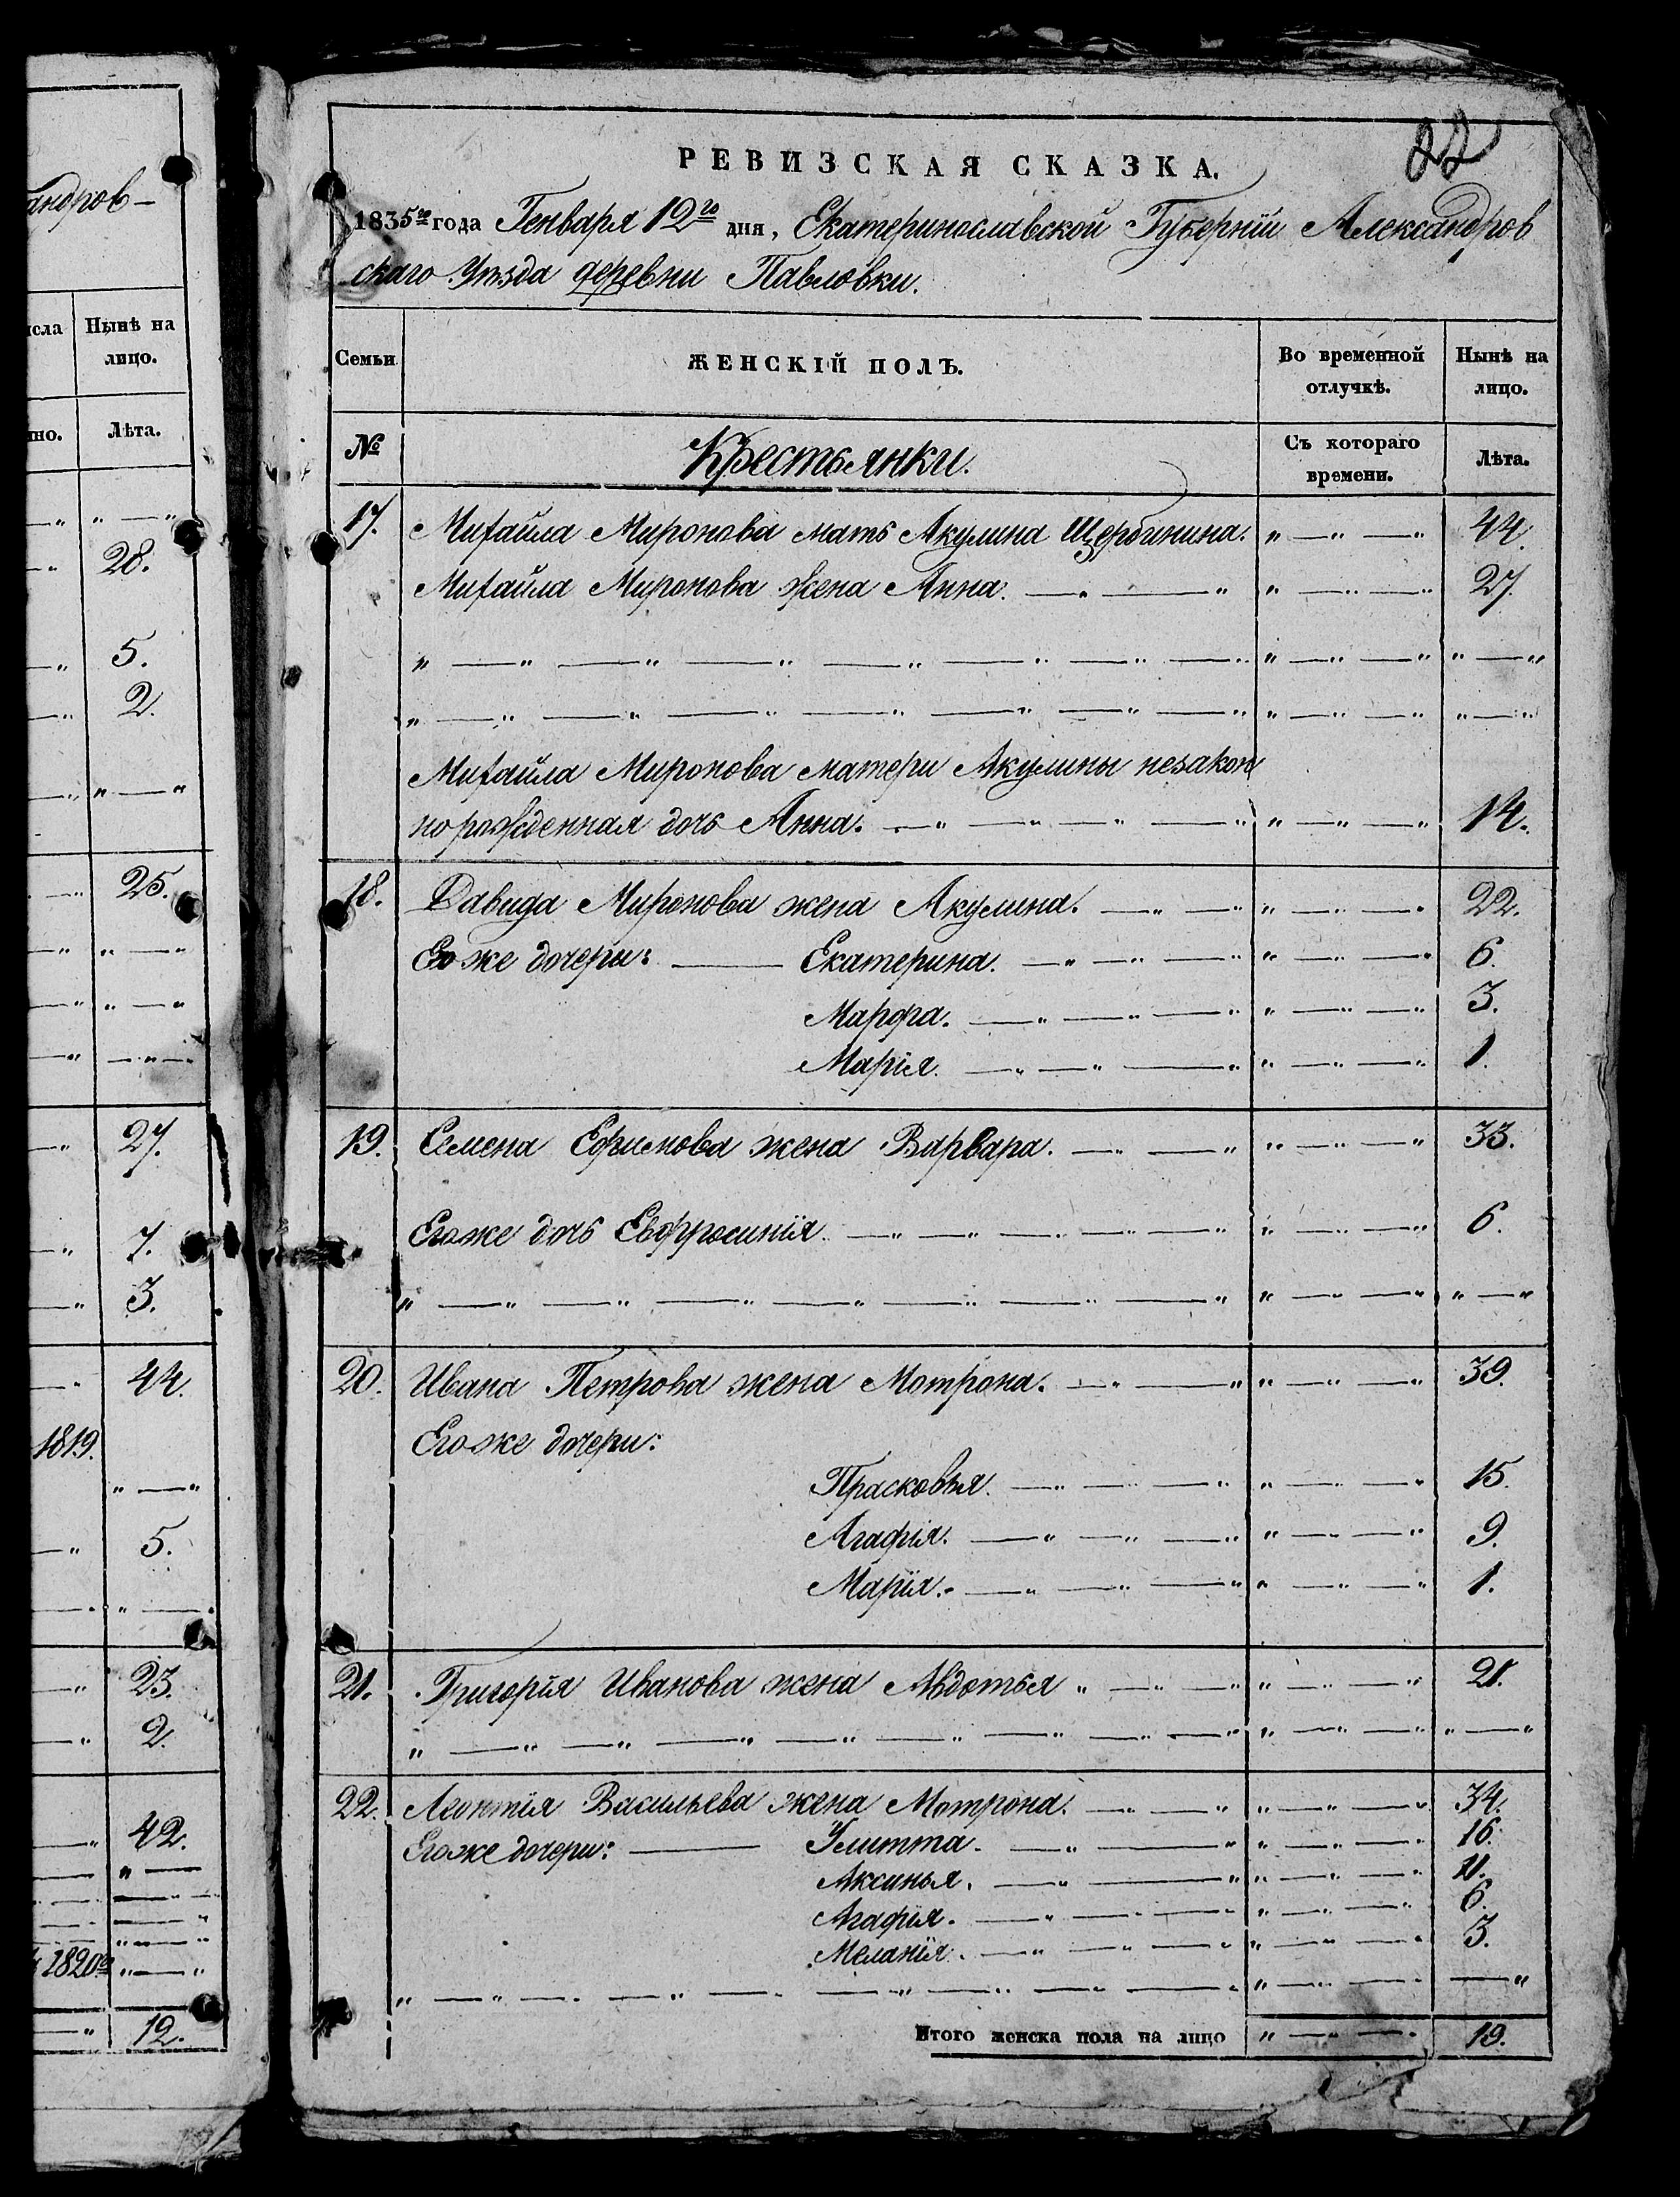 андров–
исла Нынѣ на
лицо.
но. Лѣта.
„ — „
28.
5.
2.
„ — „
25.
„ — „
„ — „
— „ —
27.
7.
3.
44.
1819.
„ — „
5.
„ —
23.
2.
42.
„ —
1820го „ — „
12.
22
РЕВИЗСКАЯ СКАЗКА.
1835го года Генваря 12го дня, Екатеринославской Губерніи Александров
скаго Уѣзда деревни Павловки.
Семьи ЖЕНСКІЙ ПОЛЪ. Во временной отлучкѣ. Нынѣ на лицо.
№ Крестьянки. Съ котораго времени. Лѣта.
17. Михайла Миронова мать Акулина Щербинина. „ — „ — „ 44.
Михайла Миронова жена Анна. — „ — „ „ — „ — „ 27.
„ — „ — „ — „ — „ — „ — „ — „ — „ „ — „ — „ „ — „
„ — „ — „ — „ — „ — „ — „ — „ „ — „ — „ „ — „
Михайла Миронова матери Акулины незакон
норожденная дочь Анна. — „ — „ — „ — „ „ — „ — „ 14.
18. Давида Миронова жена Акулина. — „ — „ „ — „ — „ 22.
Его же дочери: — Екатерина. — „ — „ — „ „ — „ — „ 6.
Марфа. — „ — „ — „ „ — „ — „ 3.
Марія. — „ — „ — „ „ — „ — „ 1.
19. Семена Ефимова жена Варвара. — „ — „ „ — „ — „ 33.
Его же дочь Евфросинія. — „ — „ — „ — „ — „ „ — „ — „ 6.
„ — „ — „ — „ — „ — „ — „ — „ „ — „ — „ „ — „
20. Ивана Петрова жена Мотрона. — „ — „ „ — „ — „ 39.
Его же дочери:
Прасковья. — „ — „ — „ „ — „ — „ 15.
Агафія. — „ — „ — „ „ — „ — „ 9.
Марія. — „ — „ — „ „ — „ — „ 1.
21. Григорія Иванова жена Авдотья „ — „ — „ „ — „ — „ 21.
„ — „ — „ — „ — „ — „ — „ — „ — „ „ — „ — „ „ — „
22. Леонтія Васильева жена Мотрона. — „ — „ „ — „ — „ 34.
Его же дочери: — Улитта. — „ — „ „ — „ — „ 16.
Аксинья. — „ — „ „ — „ — „ 11.
Агафія. — „ — „ — „ „ — „ — „ 6.
Меланія. — „ — „ — „ „ — „ — „ 3.
„ — „ — „ — „ — „ — „ — „ — „ — „ „ — „ — „ — „
Итого женска пола на лицо „ — „ — „ 19.